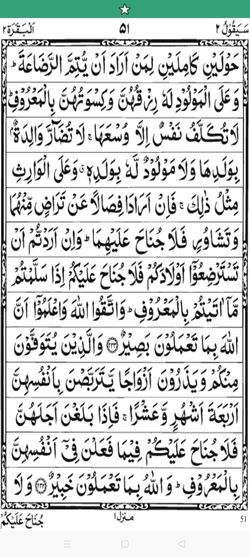 سَيَقُوۡلُ ٢ ٥١ اَلۡبَقَرَة ٢
حَوۡلَيۡنِ كَامِلَيۡنِ لِمَنۡ اَرَادَ اَنۡ يُّتِمَّ الرَّضَاعَةَ ؕ
وَعَلَى الۡمَوۡلُوۡدِ لَهٗ رِزۡقُهُنَّ وَكِسۡوَتُهُنَّ بِالۡمَعۡرُوۡفِ ؕ
لَا تُكَلَّفُ نَفۡسٌ اِلَّا وُسۡعَهَا ۚ لَا تُضَآرَّ وَالِدَةٌۢ
بِوَلَدِهَا وَلَا مَوۡلُوۡدٌ لَّهٗ بِوَلَدِهٖ ۗ وَعَلَى الۡوَارِثِ
مِثۡلُ ذٰلِكَ ۚ فَاِنۡ اَرَادَا فِصَالًا عَنۡ تَرَاضٍ مِّنۡهُمَا
وَتَشَاوُرٍ فَلَا جُنَاحَ عَلَيۡهِمَا ؕ وَاِنۡ اَرَدْتُّمۡ اَنۡ
تَسۡتَرۡضِعُوۡۤا اَوۡلَادَكُمۡ فَلَا جُنَاحَ عَلَيۡكُمۡ اِذَا سَلَّمۡتُمۡ
مَّاۤ اٰتَيۡتُمۡ بِالۡمَعۡرُوۡفِ ؕ وَاتَّقُوا اللّٰهَ وَاعۡلَمُوۡۤا اَنَّ
اللّٰهَ بِمَا تَعۡمَلُوۡنَ بَصِيۡرٌ ﴿۲۳۳﴾ وَالَّذِيۡنَ يُتَوَفَّوۡنَ
مِنۡكُمۡ وَيَذَرُوۡنَ اَزۡوَاجًا يَّتَرَبَّصۡنَ بِاَنۡفُسِهِنَّ
اَرۡبَعَةَ اَشۡهُرٍ وَّعَشۡرًا ۚ فَاِذَا بَلَغۡنَ اَجَلَهُنَّ
فَلَا جُنَاحَ عَلَيۡكُمۡ فِيۡمَا فَعَلۡنَ فِىۡۤ اَنۡفُسِهِنَّ
بِالۡمَعۡرُوۡفِ ؕ وَاللّٰهُ بِمَا تَعۡمَلُوۡنَ خَبِيۡرٌ ﴿۲۳۴﴾ وَلَا
جُنَاحَ عَلَيۡكُمۡ منزل ١ 51